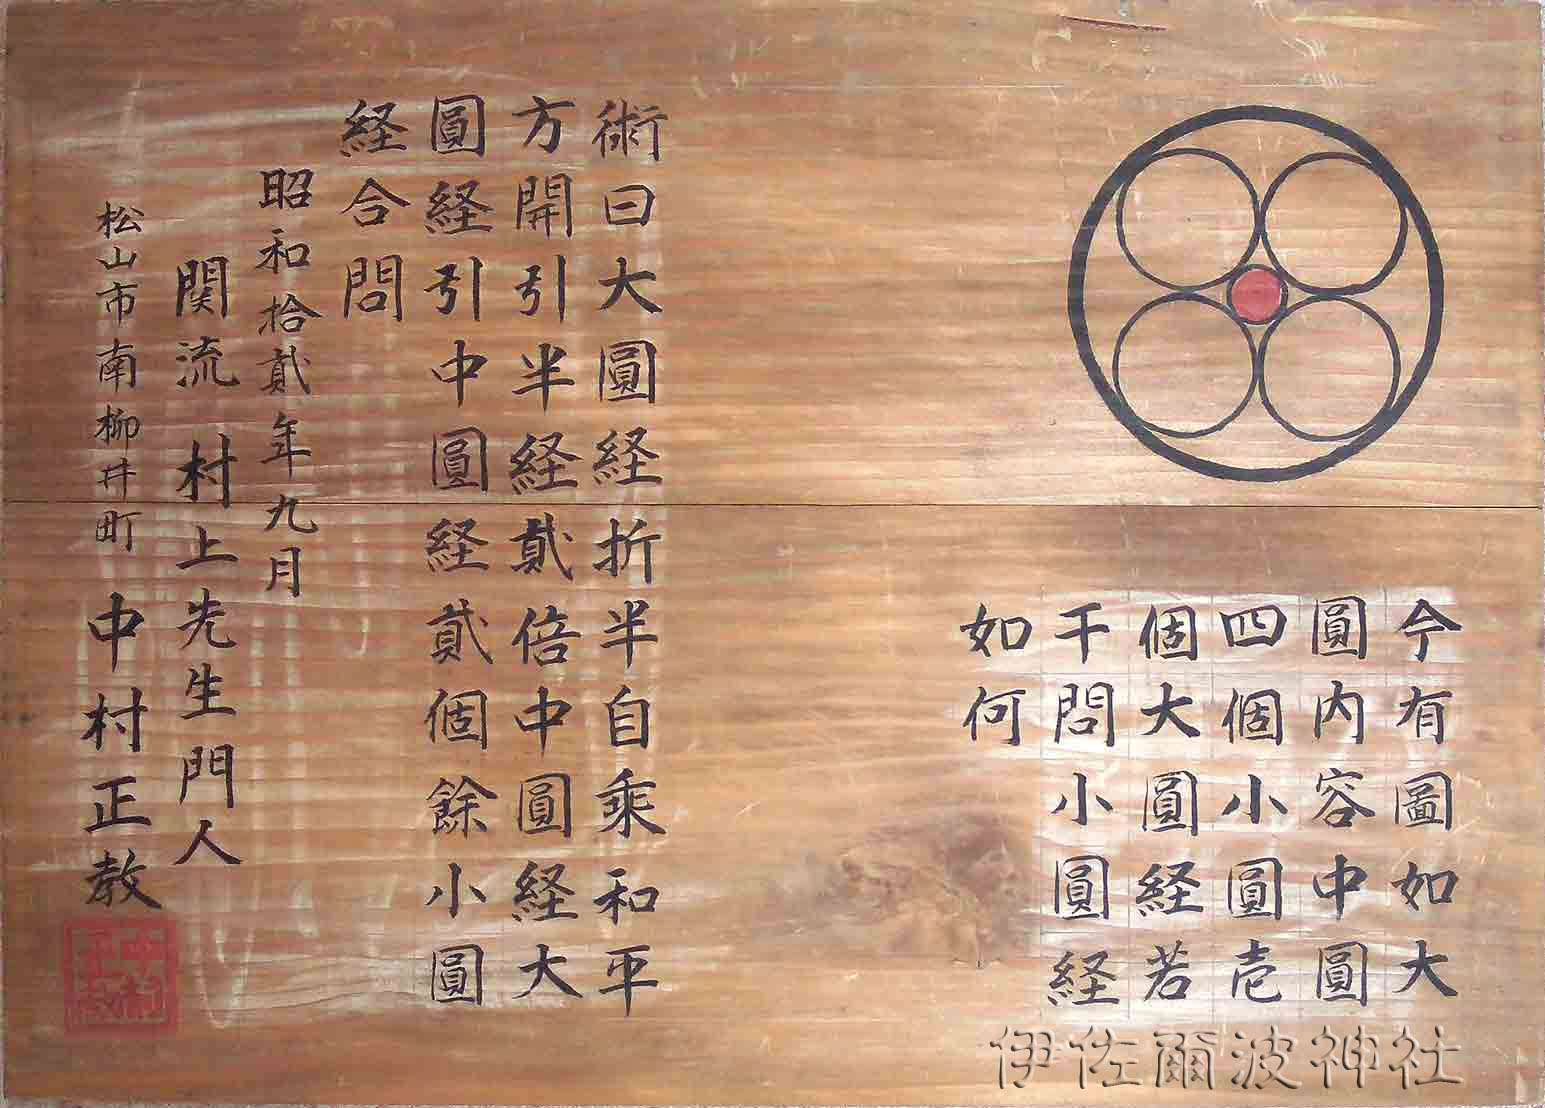 今有圖如大
圓内容中圓
四個小圓壱
個大圓経若
干問小圓経
如何
術曰大圓経折半自乘和平
方開引半経貮倍中圓経大
圓経引中圓経貮個餘小圓
経合問
昭和拾貮年九月
関流 村上先生門人
松山市南柳井町 中村正教
伊佐爾波神社